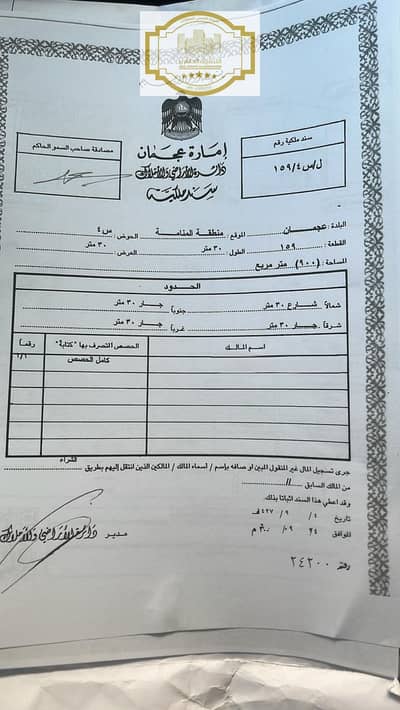 إمارة عجمان
دائرة الأراضي والأملاك
سند ملكية
سند ملكية رقم
ل/س٤/١٥٩
مصادقة صاحب السمو الحاكم
البلدة: عجمان الموقع: منطقة المنامة الحوض: س٤
القطعة: ١٥٩ الطول: ٣٠ متر العرض: ٣٠ متر
المساحة: (٩٠٠) متر مربع
الحدود
شمالاً شارع ٣٠ متر جنوباً جار ٣٠ متر
شرقاً جار ٣٠ متر غرباً جار ٣٠ متر
اسم المالك الحصص المتصرف بها "كتابة" رقماً
كامل الحصص ١/١
جرى تسجيل المال غير المنقول المبين اوصافه بإسم / أسماء المالك / المالكين الذين انتقل إليهم بطريق الشراء
من المالك السابق //
وقد اعطي هذا السند اثباتا بذلك.
تاريخ ٤ / ٩ / ٤٢٧ هـ
الموافق ٢٤ / ٠٩ / م
مدير دائرة الأراضي والأملاك
رقم ٢٤٢٠٠